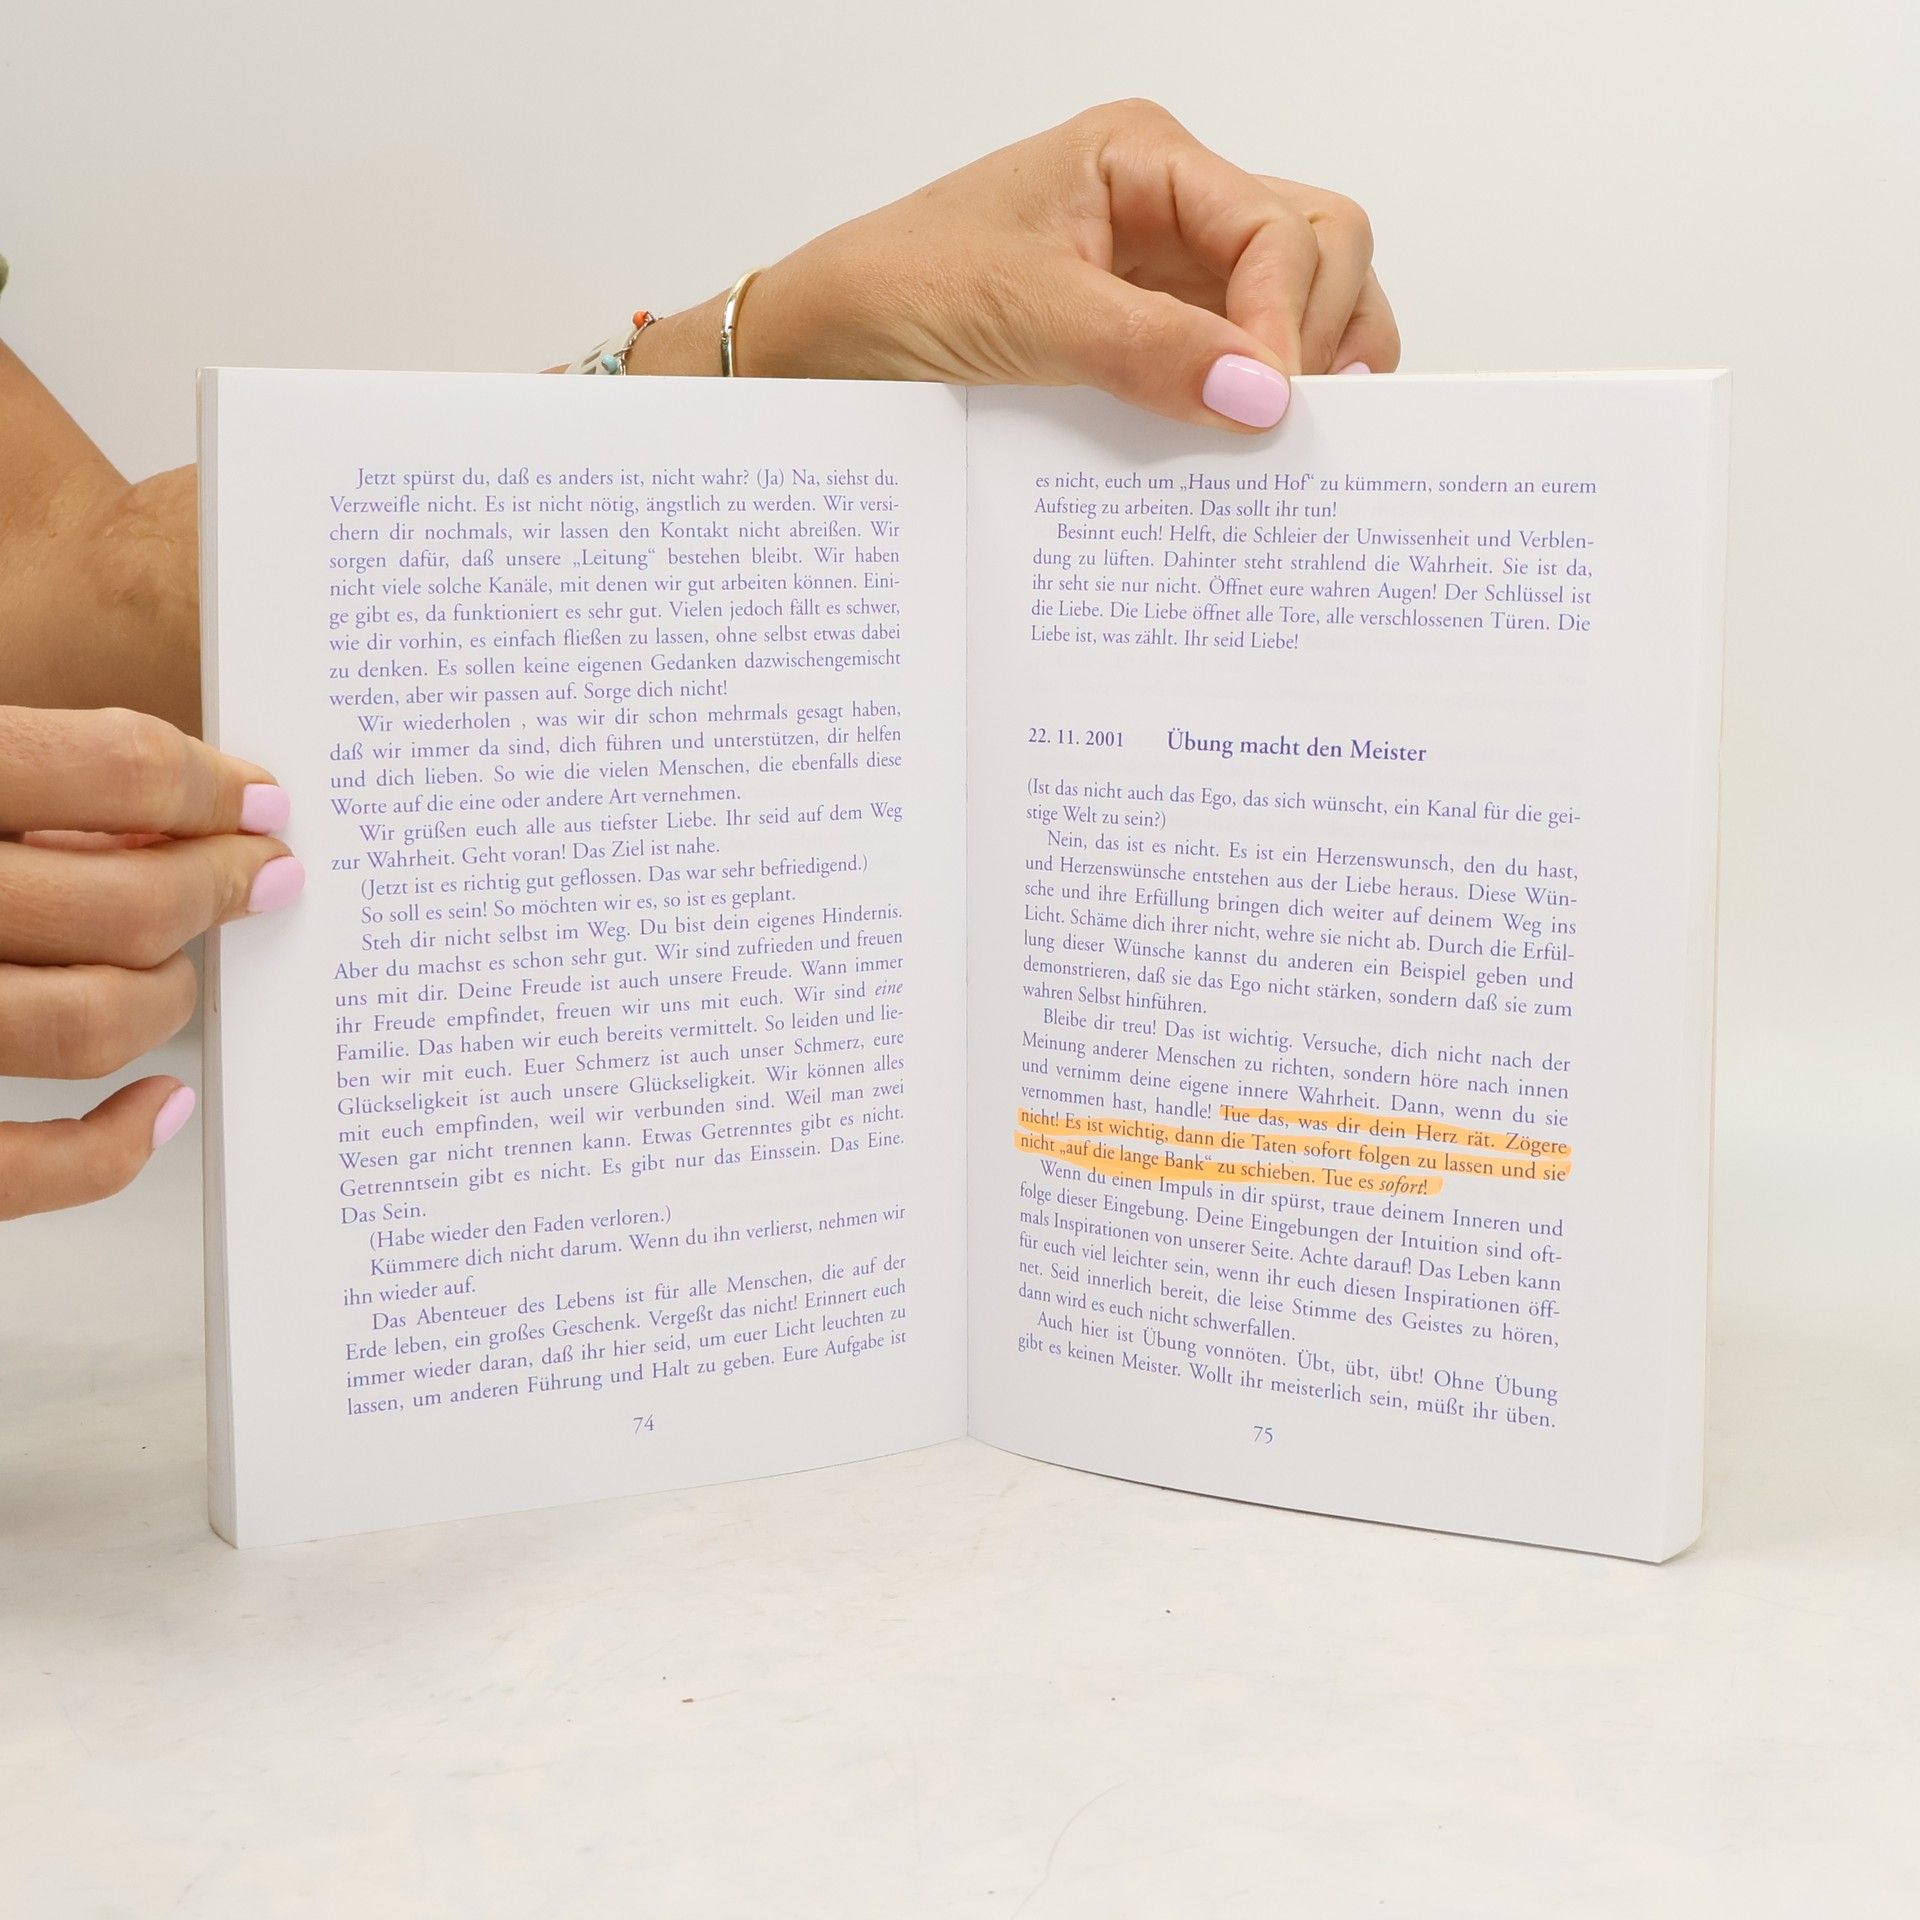 Jetzt spürst du, daß es anders ist, nicht wahr? (Ja) Na, siehst du.
Verzweifle nicht. Es ist nicht nötig, ängstlich zu werden. Wir versi-
chern dir nochmals, wir lassen den Kontakt nicht abreißen. Wir
sorgen dafür, daß unsere „Leitung“ bestehen bleibt. Wir haben
nicht viele solche Kanäle, mit denen wir gut arbeiten können. Eini-
ge gibt es, da funktioniert es sehr gut. Vielen jedoch fällt es schwer,
wie dir vorhin, es einfach fließen zu lassen, ohne selbst etwas dabei
zu denken. Es sollen keine eigenen Gedanken dazwischengemischt
werden, aber wir passen auf. Sorge dich nicht!
Wir wiederholen , was wir dir schon mehrmals gesagt haben,
daß wir immer da sind, dich führen und unterstützen, dir helfen
und dich lieben. So wie die vielen Menschen, die ebenfalls diese
Worte auf die eine oder andere Art vernehmen.
Wir grüßen euch alle aus tiefster Liebe. Ihr seid auf dem Weg
zur Wahrheit. Geht voran! Das Ziel ist nahe.
(Jetzt ist es richtig gut geflossen. Das war sehr befriedigend.)
So soll es sein! So möchten wir es, so ist es geplant.
Steh dir nicht selbst im Weg. Du bist dein eigenes Hindernis.
Aber du machst es schon sehr gut. Wir sind zufrieden und freuen
uns mit dir. Deine Freude ist auch unsere Freude. Wann immer
ihr Freude empfindet, freuen wir uns mit euch. Wir sind eine
Familie. Das haben wir euch bereits vermittelt. So leiden und lie-
ben wir mit euch. Euer Schmerz ist auch unser Schmerz, eure
Glückseligkeit ist auch unsere Glückseligkeit. Wir können alles
mit euch empfinden, weil wir verbunden sind. Weil man zwei
Wesen gar nicht trennen kann. Etwas Getrenntes gibt es nicht.
Getrenntsein gibt es nicht. Es gibt nur das Einssein. Das Eine.
Das Sein.
(Habe wieder den Faden verloren.)
Kümmere dich nicht darum. Wenn du ihn verlierst, nehmen wir
ihn wieder auf.
Das Abenteuer des Lebens ist für alle Menschen, die auf der
Erde leben, ein großes Geschenk. Vergeßt das nicht! Erinnert euch
immer wieder daran, daß ihr hier seid, um euer Licht leuchten zu
lassen, um anderen Führung und Halt zu geben. Eure Aufgabe ist
74
es nicht, euch um „Haus und Hof“ zu kümmern, sondern an eurem
Aufstieg zu arbeiten. Das sollt ihr tun!
Besinnt euch! Helft, die Schleier der Unwissenheit und Verblen-
dung zu lüften. Dahinter steht strahlend die Wahrheit. Sie ist da,
ihr seht sie nur nicht. Öffnet eure wahren Augen! Der Schlüssel ist
die Liebe. Die Liebe öffnet alle Tore, alle verschlossenen Türen. Die
Liebe ist, was zählt. Ihr seid Liebe!
22. 11. 2001 Übung macht den Meister
(Ist das nicht auch das Ego, das sich wünscht, ein Kanal für die gei-
stige Welt zu sein?)
Nein, das ist es nicht. Es ist ein Herzenswunsch, den du hast,
und Herzenswünsche entstehen aus der Liebe heraus. Diese Wün-
sche und ihre Erfüllung bringen dich weiter auf deinem Weg ins
Licht. Schäme dich ihrer nicht, wehre sie nicht ab. Durch die Erfül-
lung dieser Wünsche kannst du anderen ein Beispiel geben und
demonstrieren, daß sie das Ego nicht stärken, sondern daß sie zum
wahren Selbst hinführen.
Bleibe dir treu! Das ist wichtig. Versuche, dich nicht nach der
Meinung anderer Menschen zu richten, sondern höre nach innen
und vernimm deine eigene innere Wahrheit. Dann, wenn du sie
vernommen hast, handle! Tue das, was dir dein Herz rät. Zögere
nicht! Es ist wichtig, dann die Taten sofort folgen zu lassen und sie
nicht „auf die lange Bank“ zu schieben. Tue es sofort!
Wenn du einen Impuls in dir spürst, traue deinem Inneren und
folge dieser Eingebung. Deine Eingebungen der Intuition sind oft-
mals Inspirationen von unserer Seite. Achte darauf! Das Leben kann
für euch viel leichter sein, wenn ihr euch diesen Inspirationen öff-
net. Seid innerlich bereit, die leise Stimme des Geistes zu hören,
dann wird es euch nicht schwerfallen.
Auch hier ist Übung vonnöten. Übt, übt, übt! Ohne Übung
gibt es keinen Meister. Wollt ihr meisterlich sein, müßt ihr üben.
75